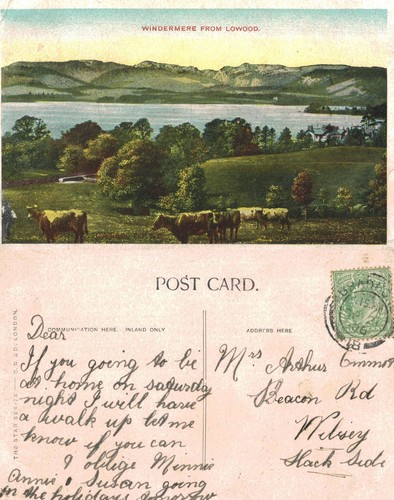 WINDERMERE FROM LOWOOD.
POST CARD.
COMMUNICATION HERE. INLAND ONLY
ADDRESS HERE
THE STAR SERIES. G.D.&D. LONDON.
Dear
If you going to be
at home on saturday
night I will have
a walk up let me
know if you can
I oblige Minnie
Annie & Susan going
in the holidays
Mrs Arthur
Beacon Rd
Wibsey
Slack Side